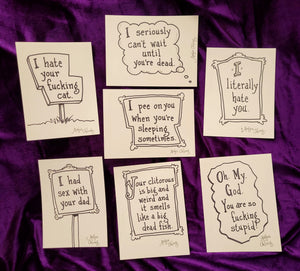 I hate
your
fucking
cat.
I seriously
can't wait
until
you're dead.
I
literally
hate
you.
I pee on you
when you're
sleeping,
sometimes.
I had
sex with
your dad.
Your clitorous
is big and
weird and it
smells like
a big
dead fish.
Oh My
God.
You are so
fucking
stupid!